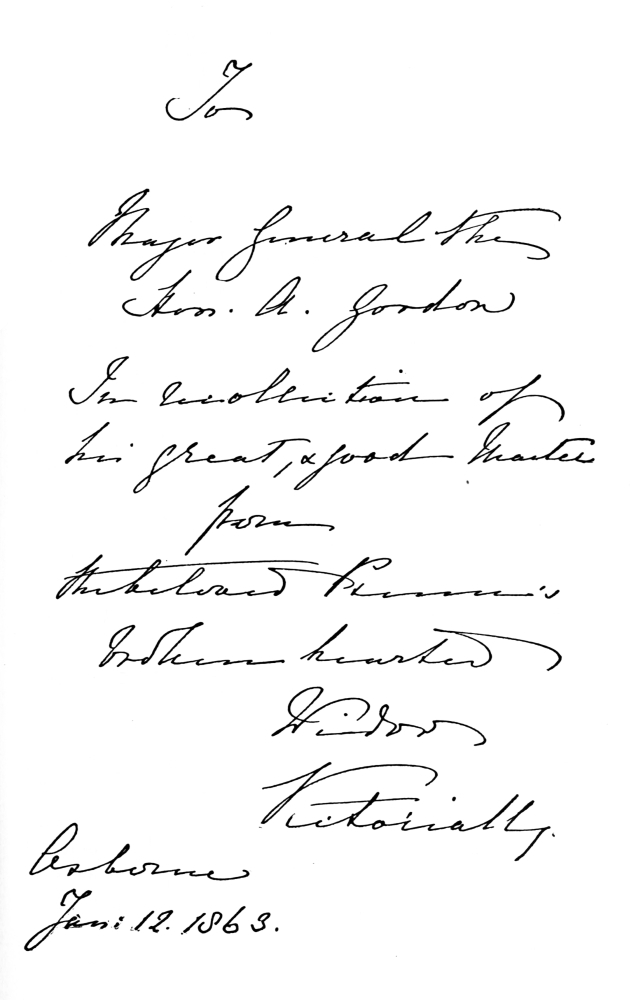 To
Major General The
Hon. A. Gordon
In recollection of
his great, & good Master
from
the beloved Prince's
broken hearted
Widow
Victoria
Osborne
Jan: 12. 1863.